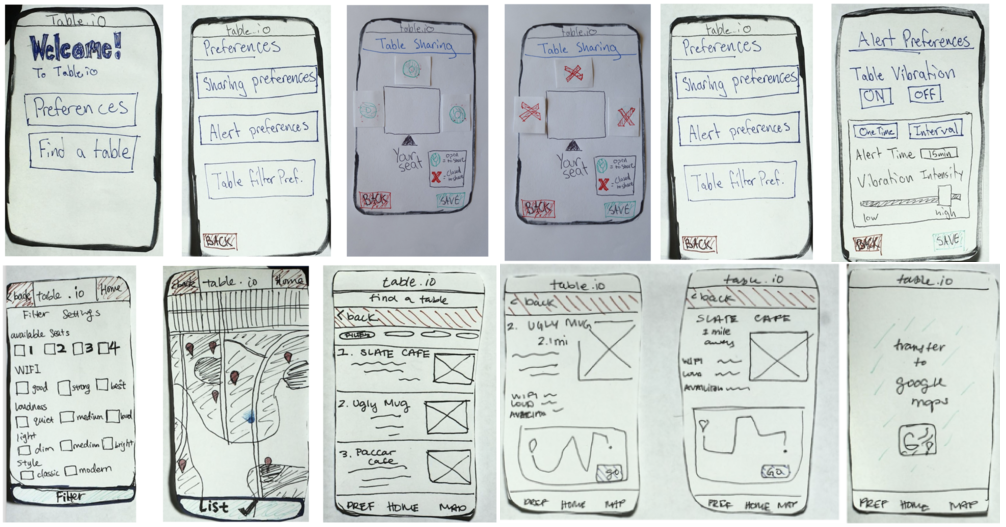 Table.io
Welcome!
To Table.io
Preferences
Find a table
table.io
Preferences
Sharing preferences
Alert preferences
Table Filter Pref.
BACK
table.io
Table Sharing
Your
seat
= open
to share
X = closed
to share
BACK
SAVE
table.io
Table Sharing
Your
seat
= open
to share
X = closed
to share
BACK
SAVE
table.io
Preferences
Sharing preferences
Alert preferences
Table Filter Pref.
BACK
Alert Preferences
Table Vibration
ON OFF
One Time Interval
Alert Time 15min
Vibration Intensity
low high
BACK SAVE
<back table.io Home
Filter Settings
available Seats
1 2 3 4
WIFI
good strong best
loudness
quiet medium loud
light
dim medium bright
style
classic modern
Filter
<back table.io Home
List
table.io
find a table
<back
1. SLATE CAFE
2. Ugly Mug
3. Paccar
cafe
PREF HOME MAP
table.io
<back
2. UGLY MUG
2.1mi
WIFI
LOUD
go
PREF HOME MAP
table.io
<back
SLATE CAFE
1 mile
away
WIFI
LOUD
Go
PREF HOME MAP
table.io
transfer
to
google
maps
G
PREF HOME MAP